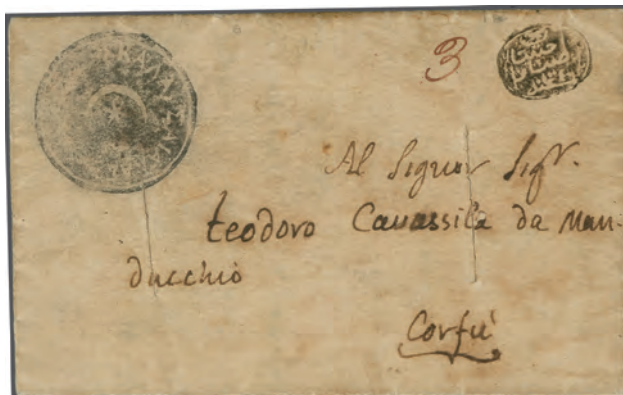 3
Al Signor Sigr.
teodoro Cavassila da Man-
ducchio
Corfù